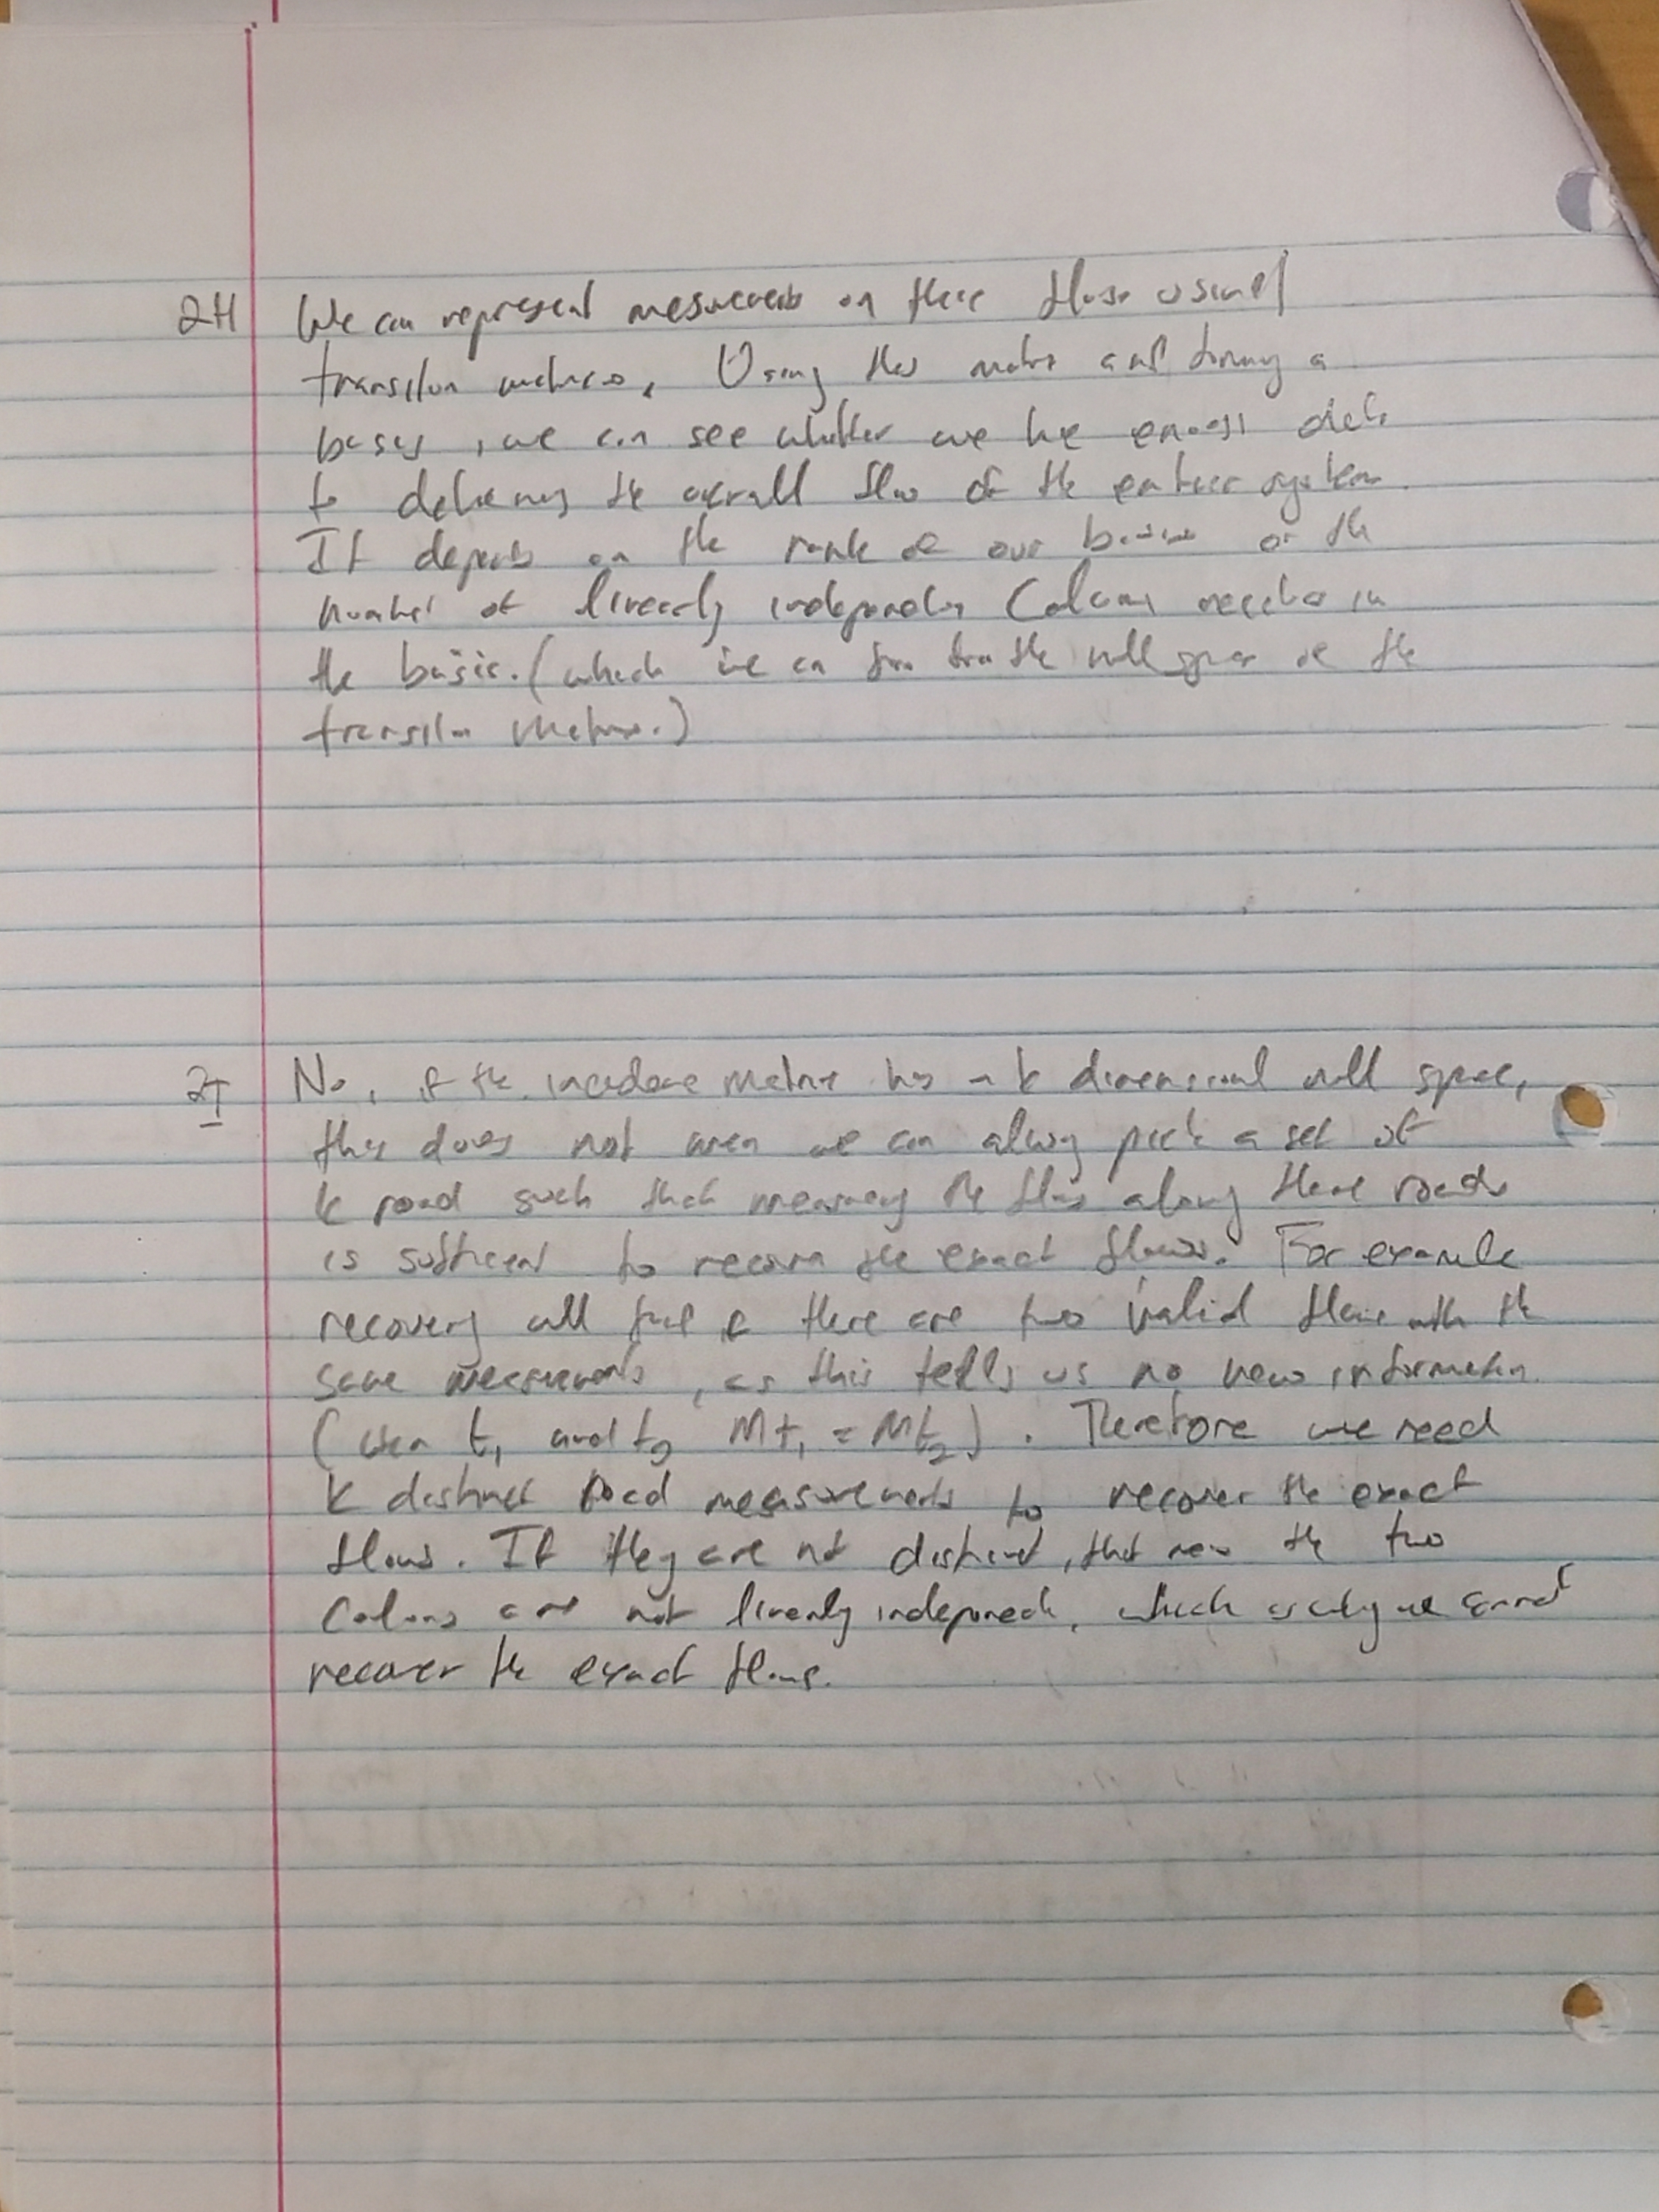 2H We can represent measurements on these flows using
transition matrices. Using this matrix and forming a
basis, we can see whether we have enough data
to determine the overall flow of the entire system.
It depends on the rank of our basis or the
number of linearly independent Column vectors in
the basis. (which we can from the null space of the
transition matrix.)
2I No, if the incidence matrix has a k dimensional null space,
this does not mean we can always pick a set of
k road such that measuring the flow along these roads
is sufficient to recover the exact flows. For example
recovery will fail if there are two valid flows with the
same measurements, as this tells us no new information.
( t1 and t2 Mt1 = Mt2). Therefore we need
k distinct road measurements to recover the exact
flows. If they are not distinct, that means the two
Columns are not linearly independent, which is why we cannot
recover the exact flows.